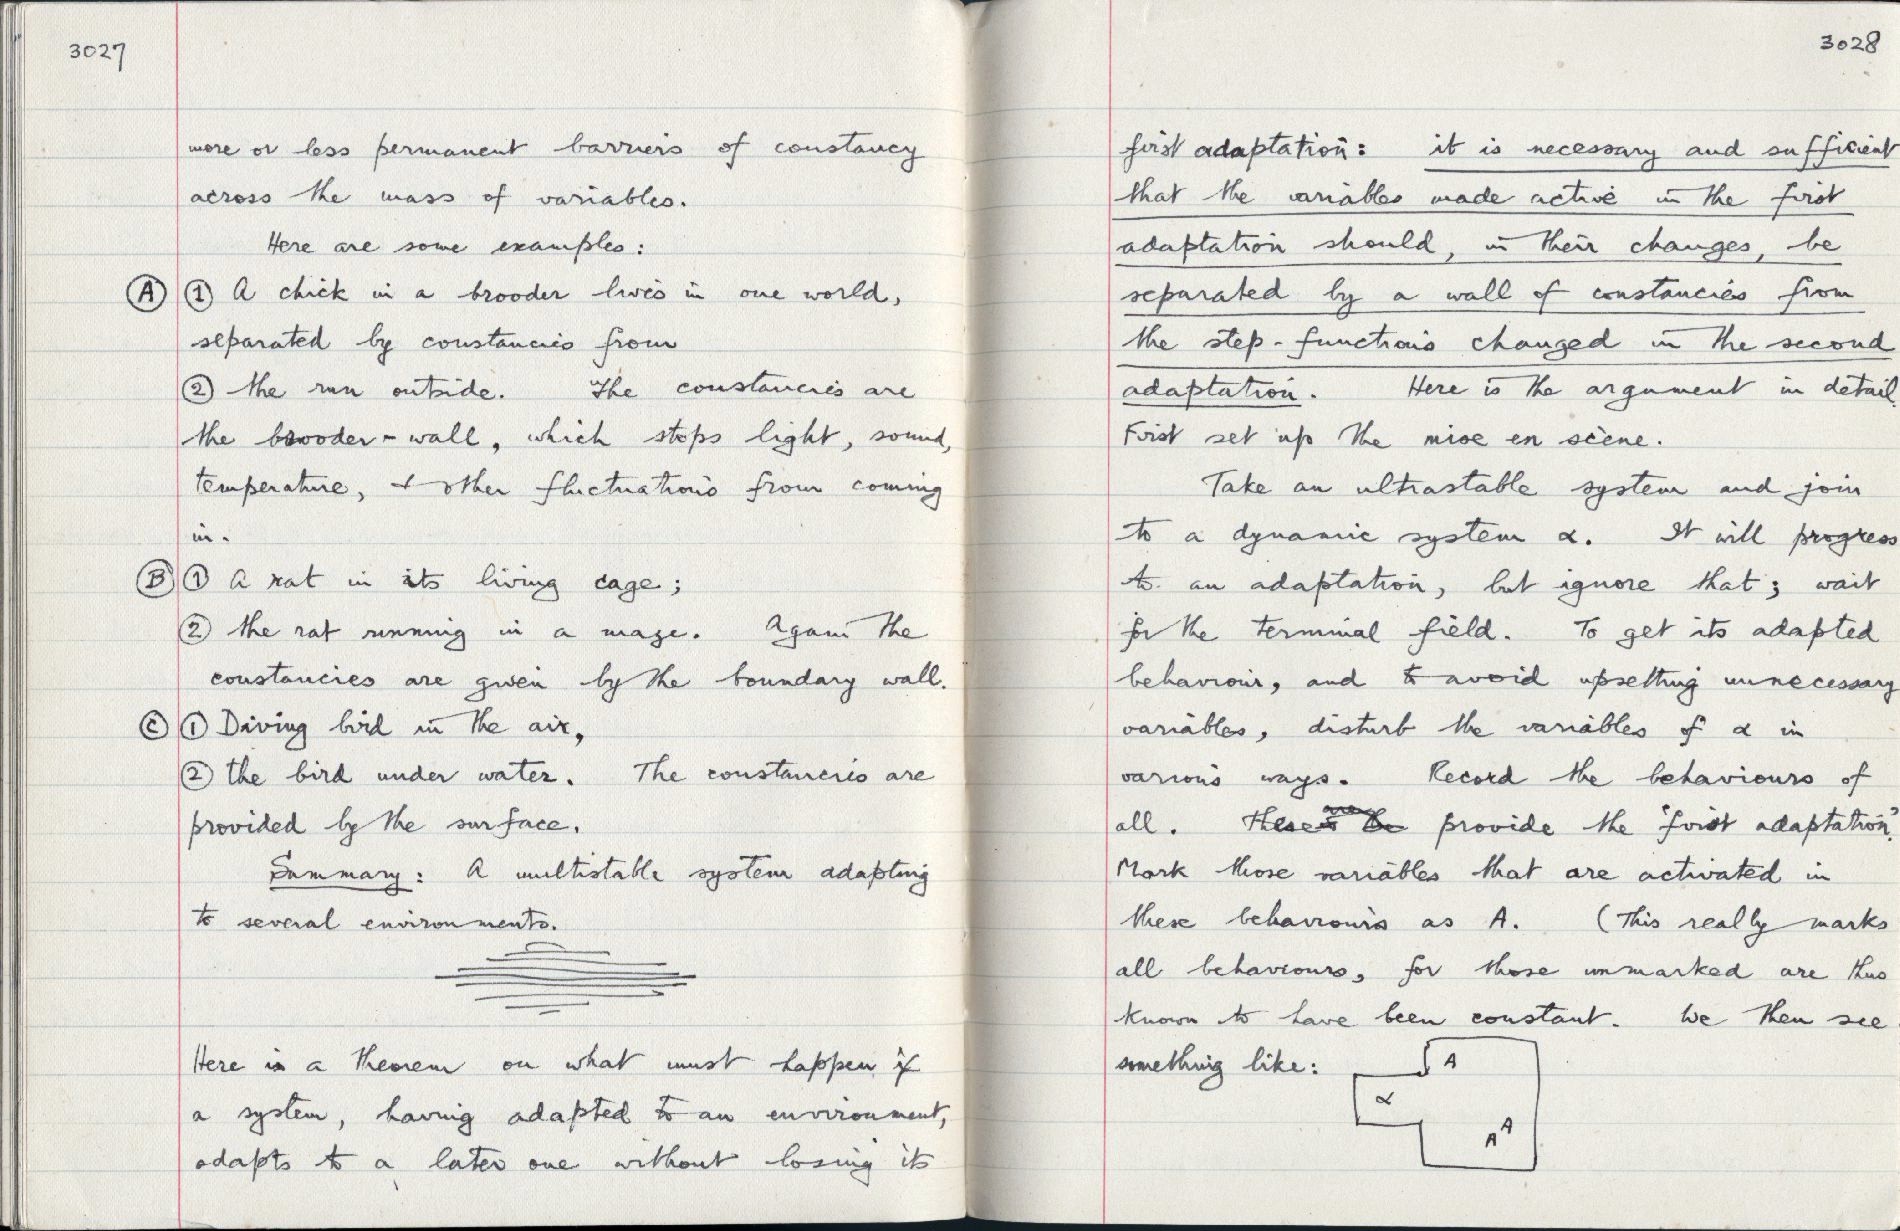 3027
more or less permanent barriers of constancy
across the mass of variables.
Here are some examples:
Ⓐ ① A chick in a brooder lives in one world,
separated by constancies from
② the run outside. The constancies are
the brooder-wall, which stops light, sound,
temperature, & other fluctuations from coming
in.
Ⓑ ① A rat in its living cage;
② the rat running in a maze. Again the
constancies are given by the boundary wall.
Ⓒ ① Diving bird in the air,
② the bird under water. The constancies are
provided by the surface.
Summary: A multistable system adapting
to several environments.
Here is a theorem on what must happen if
a system, having adapted to an environment,
adapts to a later one without losing its
3028
first adaptation: it is necessary and sufficient
that the variables made active in the first
adaptation should, in their changes, be
separated by a wall of constancies from
the step-functions changed in the second
adaptation. Here is the argument in detail.
First set up the mise en scène.
Take an ultrastable system and join
to a dynamic system α. It will progress
to an adaptation, but ignore that; wait
for the terminal field. To get its adapted
behaviour, and to avoid upsetting unnecessary
variables, disturb the variables of α in
various ways. Record the behaviours of
all. These provide the "first adaptation".
Mark those variables that are activated in
these behaviours as A. (This really marks
all behaviours, for those unmarked are thus
known to have been constant. We then see
something like:
A
α
A A